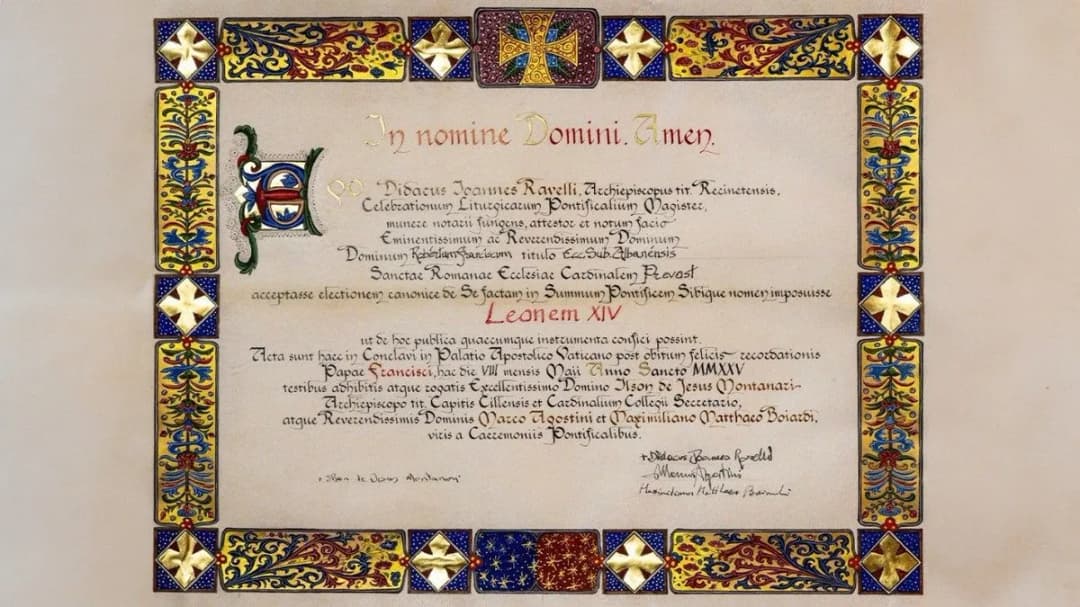 In nomine Domini. Amen.
EGO Didacus Ioannes Ravelli, Archiepiscopus tit. Recinetensis,
Celebrationum Liturgicarum Pontificalium Magister,
munere notarii fungens, attestor et notum facio
Eminentissimum ac Reverendissimum Dominum
Dominum Robertum Franciscum titulo Ecc. Sub. Albanensis
Sanctae Romanae Ecclesiae Cardinalem Prevost
acceptasse electionem canonice de Se factam in Summum Pontificem Sibique nomen imposuisse
Leonem XIV
ut de hoc publica quaecumque instrumenta confici possint.
Acta sunt haec in Conclavi in Palatio Apostolico Vaticano post obitum felicis recordationis
Papae Francisci, hac die VIII mensis Maii Anno Sancto MMXXV
testibus adhibitis atque rogatis Excellentissimo Domino Ilson de Jesus Montanari
Archiepiscopo tit. Capitis Cillensis et Cardinalium Collegii Secretario,
atque Reverendissimis Dominis Marco Agostini et Maximiliano Matthaeo Boiardi,
viris a Caeremoniis Pontificalibus.
+ Didacus Ioannes Ravelli
Marcus Agostini
+ Ilson de Jesus Montanari
Maximilianus Matthaeus Boiardi